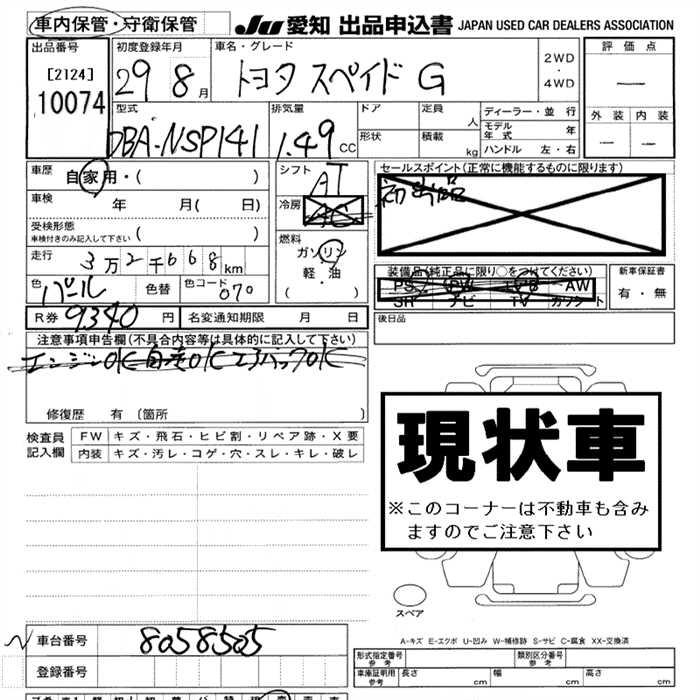 車内保管・守衛保管
JU 愛知 出品申込書 JAPAN USED CAR DEALERS ASSOCIATION
出品番号 初度登録年月 車名・グレード 評価点
[2124] 29 8月 トヨタ スペイド G 2WD・4WD —
10074
型式 排気量 ドア 定員 人 ディーラー・並行 外装 内装
DBA-NSP141 1.49 CC 形状 積載 kg モデル年式 年 — —
ハンドル 左・右
車歴 自家用・( ) シフト AT セールスポイント(正常に機能するものに限ります)
車検 年 月( 日) 冷房 AC
受検形態 車検付きのみ記入して下さい ( ) 燃料 ガソリン
走行 3万2千668km 軽・油 ( ) 装備品(純正品に限り○をつけてください) 新車保証書
色 パール 色替 色コード 070 PS PW AW 有・無
SR ナビ TV カワシート
R券 9340円 名変通知期限 月 日 後日品
注意事項申告欄(不具合内容等は具体的に記入して下さい)
エンジンOK 自走OK エアバッグOK
修復歴 有 〔箇所 〕
現状車
※このコーナーは不動車も含みますのでご注意下さい
検査員記入欄 FW キズ・飛石・ヒビ割・リペア跡・X要
内装 キズ・汚レ・コゲ・穴・スレ・キレ・破レ
スペア
A-キズ E-エクボ U-凹み W-補修跡 S-サビ C-腐食 XX-交換済
車台番号 8058505
登録番号
形式指定番号 参考 類別区分番号 参考
車庫証明用 参考 長さ cm 幅 cm 高さ cm